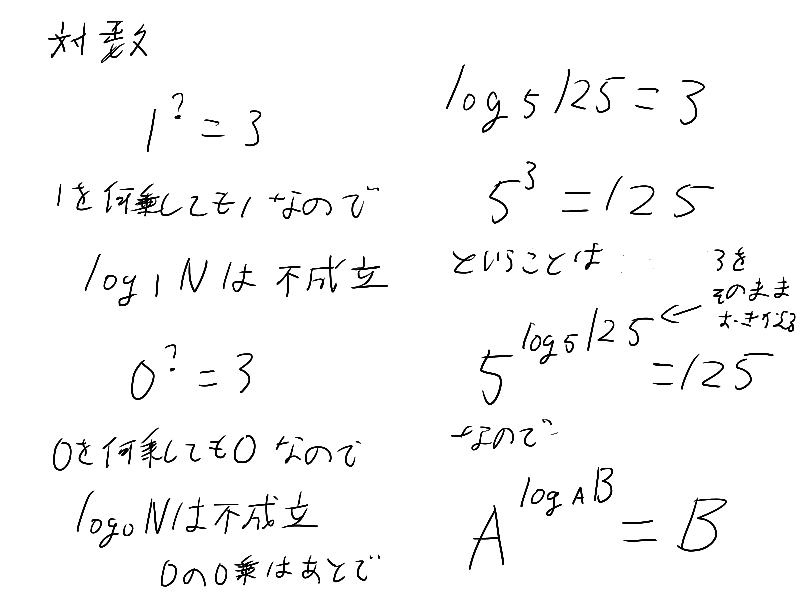 対数
1^? = 3
1を何乗しても1なので
log₁Nは不成立
0^? = 3
0を何乗しても0なので
log₀Nは不成立
0の0乗はあとで
log₅125 = 3
5³ = 125
ということは
3を
そのまま
おきかえる
5^log₅125 = 125
なので
A^log_A B = B